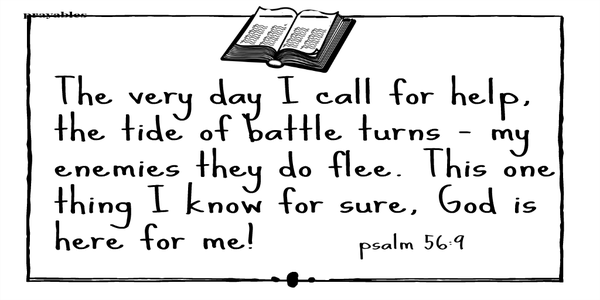 prayables
The very day I call for help,
the tide of battle turns - my
enemies they do flee. This one
thing I know for sure, God is
here for me!
psalm 56:9